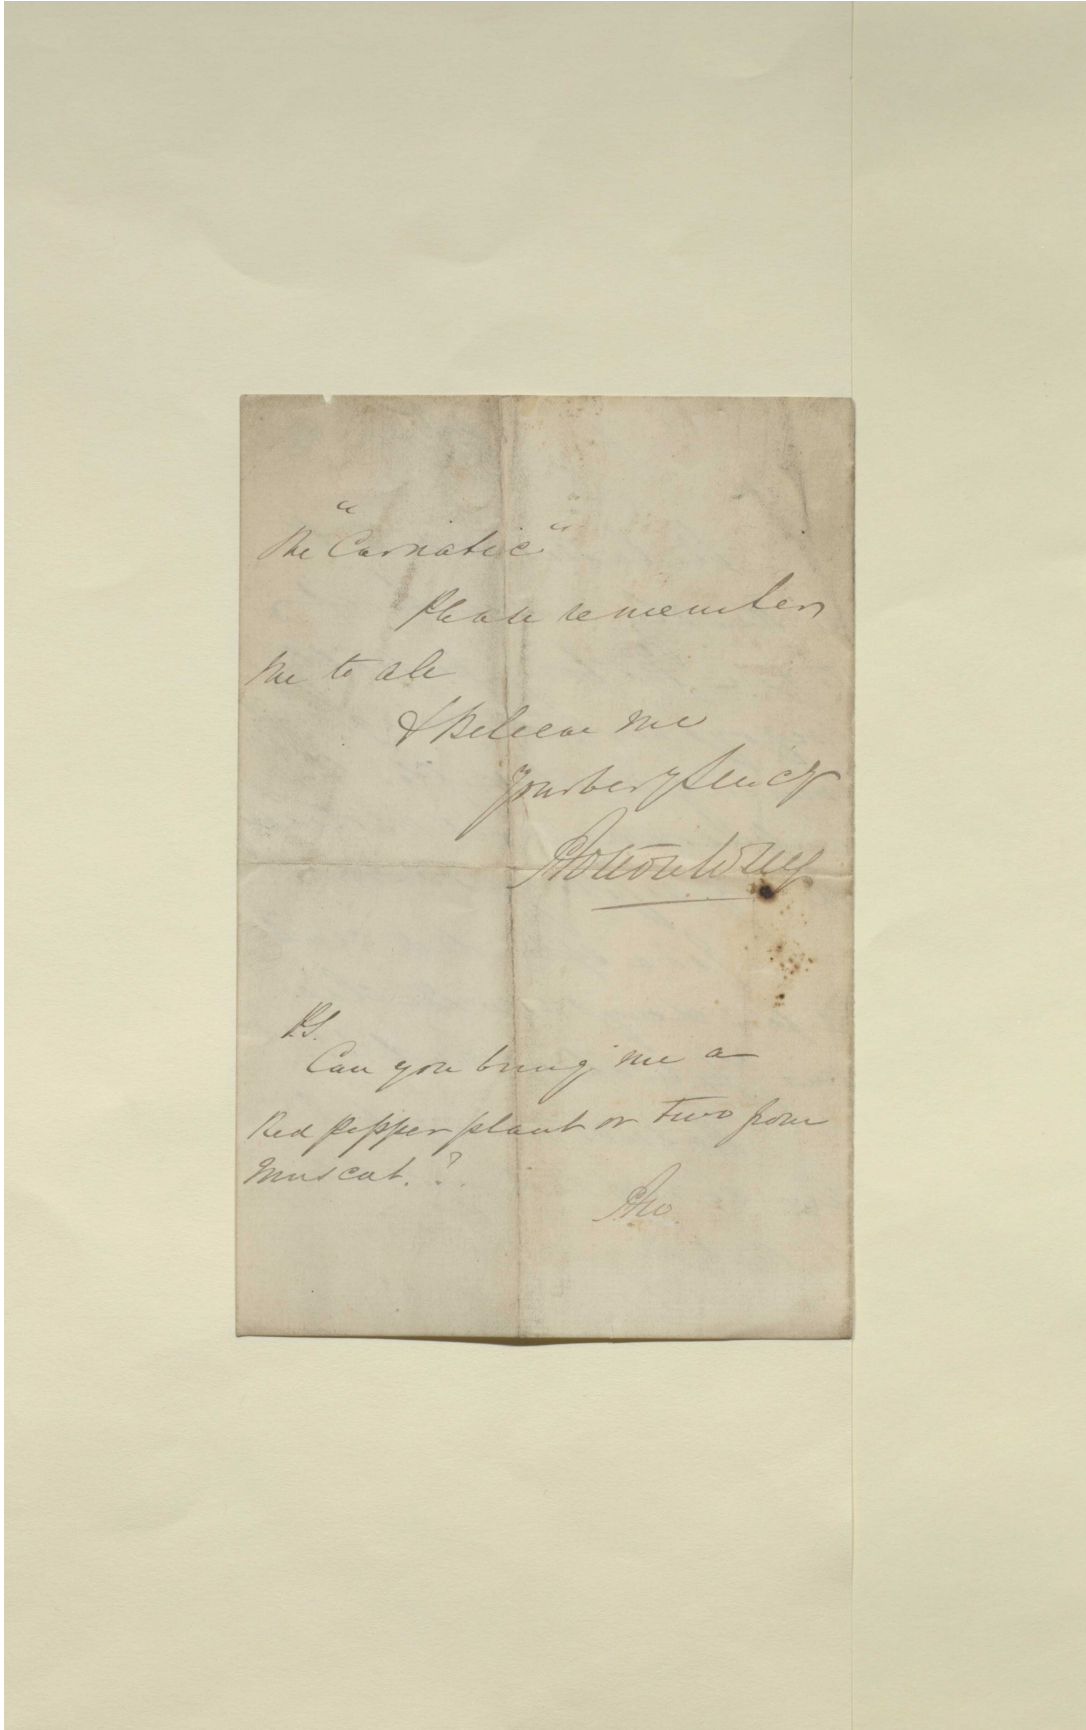 the "Carnatic"
Please remember
me to all
& Believe me
Yours very sincly
P.S.
Can you bring me a
Red Pepper plant or two from
Muscat.?